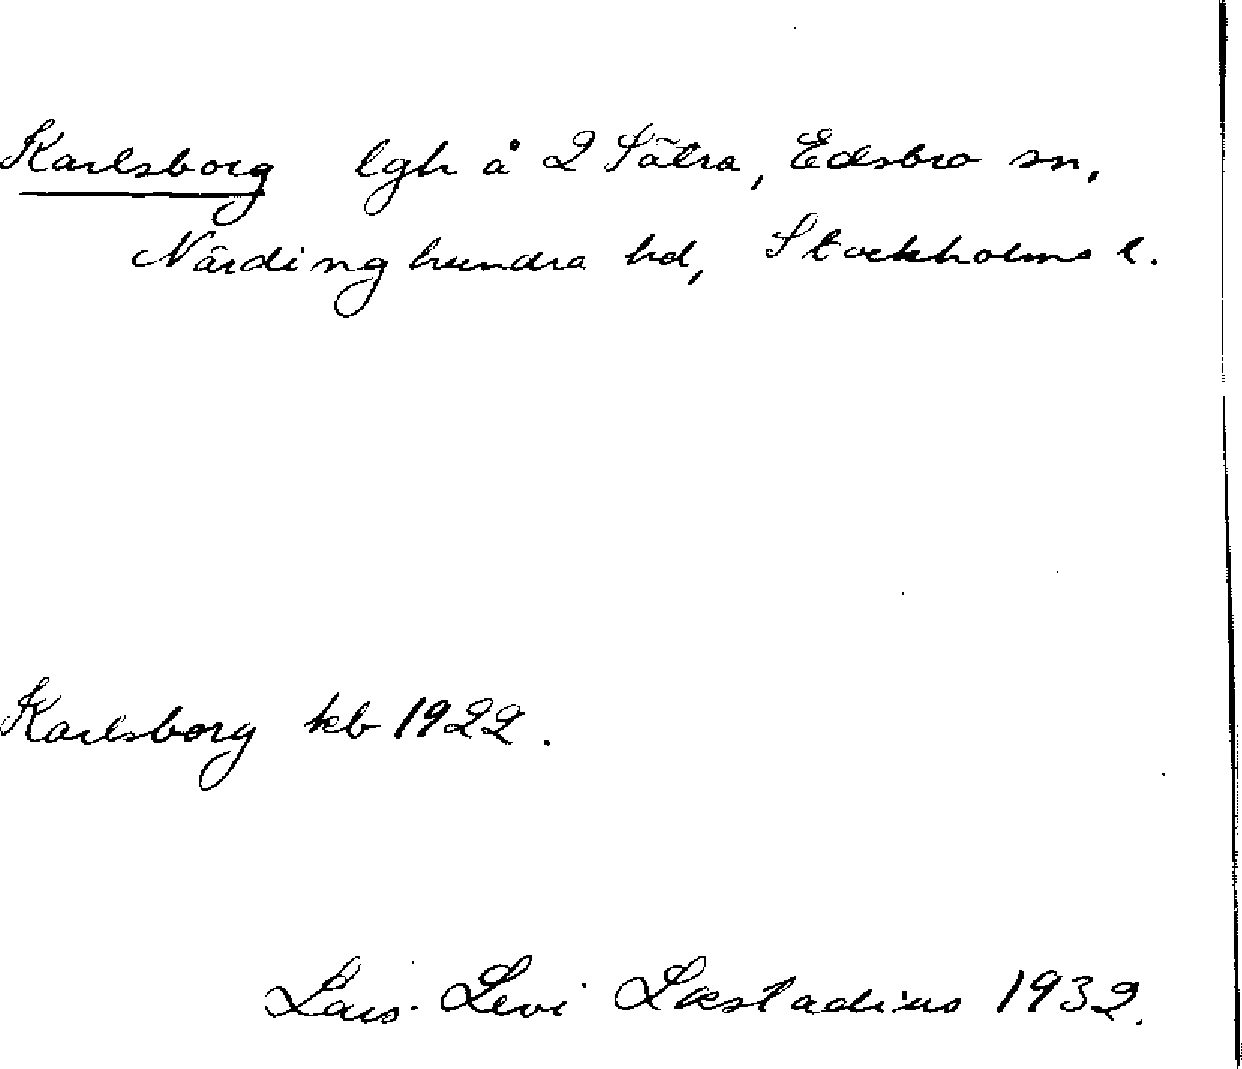 Karlsborg lgh å 2 Sätra, Edsbro sn,
Närdinghundra hd, Stockholms l.
Karlsborg kb 1922.
Lars-Levi Læstadius 1932.